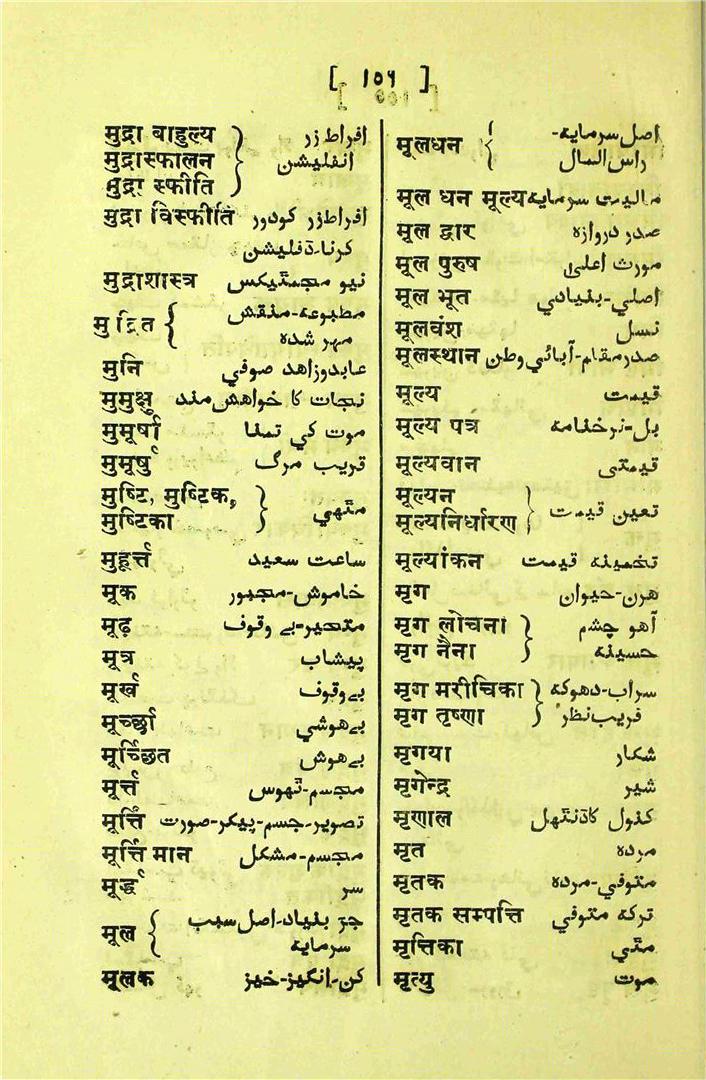 [ ١٥٦ ]
मुद्रा बाहुल्य افراط زر
मुद्रास्फालन انفلیشن
मुद्रा स्फीति
मुद्रा विस्फीति افراط زر کو دور
کرنا-ڈفلیشن
मुद्राशास्त्र نیو مجمٹیکس
मुद्रित { مطبوعہ-منقش
مہر شدہ
मुनि عابد و زاھد صوفی
मुमुक्षु نجات کا خواھش مند
मुमूर्षा موت کی تمنا
मुमूर्षु قریب مرگ
मुष्टि, मुष्टिक, } مٹھی
मुष्टिका
मुहूर्त्त ساعت سعید
मूक خاموش-مجبور
मूढ़ متحیر-بے وقوف
मूत्र پیشاب
मूर्ख بے وقوف
मूर्च्छा بے ھوشی
मूर्च्छित بے ھوش
मूर्त्त مجسم-ٹھوس
मूर्त्ति تصویر-جسم-پیکر-صورت
मूर्त्तिमान مجسم-مشکل
मूर्द्ध سر
मूल { جز بنیاد-اصل سبب
سرمایہ
मूलक کن-انگیز-خیز
मूलधन { اصل سرمایہ-
راس المال
मूल धन मूल्य مالیت سرمایہ
मूल द्वार صدر دروازہ
मूल पुरुष مورث اعلیٰ
मूल भूत اصلی-بنیادی
मूलवंश نسل
मूलस्थान صدر مقام-آبائی وطن
मूल्य قیمت
मूल्य पत्र بل-نرخنامہ
मूल्यवान قیمتی
मूल्यन } تعین قیمت
मूल्यनिर्धारण
मूल्यांकन تخمینہ قیمت
मृग ھرن-حیوان
मृग लोचना } آھو چشم
मृग नैना حسینہ
मृग मरीचिका } سراب-دھوکہ
मृग तृष्णा فریب نظر
मृगया شکار
मृगेन्द्र شیر
मृणाल کنول کا ڈنٹھل
मृत مردہ
मृतक متوفی-مردہ
मृतक सम्पत्ति ترکہ متوفی
मृत्तिका مٹی
मृत्यु موت